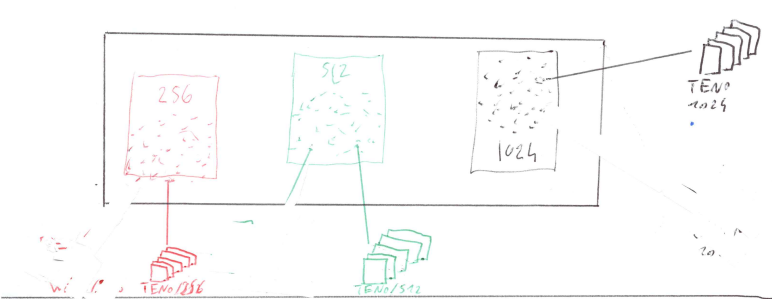 256
512
1024
TENO
1024
TENO/256
TENO/512
20.